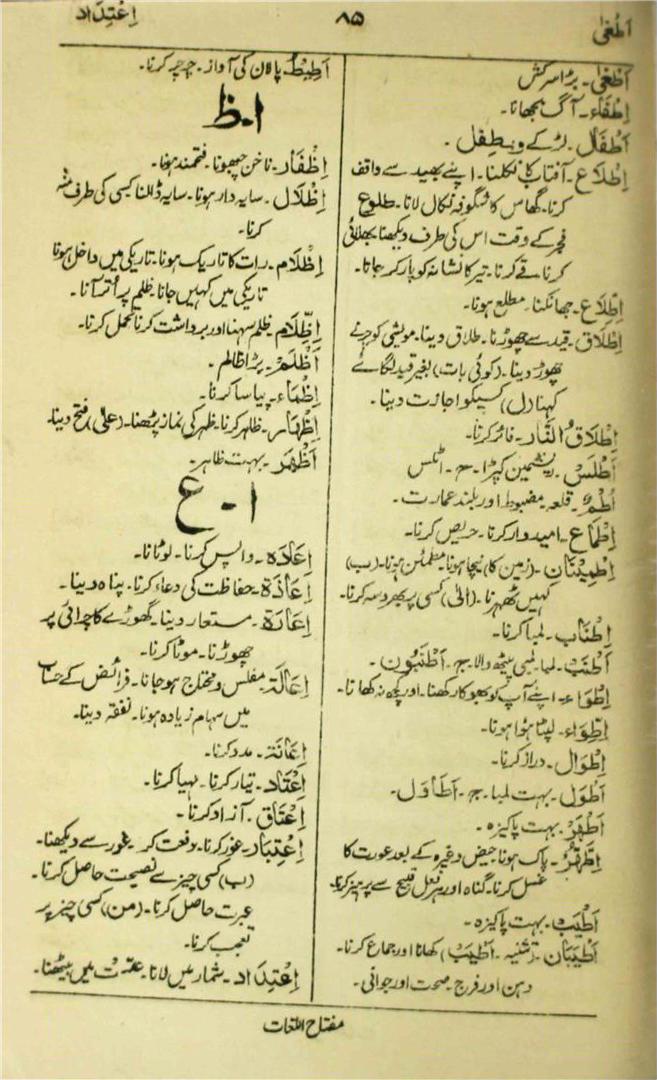 اَطْغٰی
۸۵
اِعْتِدَاد
اَطْغٰی۔ بڑا سرکش
اِطْفَاء۔ آگ بجھانا۔
اَطْفَال۔ لڑکے وہ طِفل۔
اِطْلَاع۔ آفتاب کا نکلنا۔ اپنے بھید سے واقف
کرنا۔ گھاس کا شگوفہ نکال لانا۔ طلوع
فجر کے وقت اس کی طرف دیکھنا بھلائی
کرنا قے کرنا۔ تیر کا نشانہ کو پار کر جانا۔
اِطِّلَاع۔ جھانکنا۔ مطلع ہونا۔
اِطْلَاق۔ قید سے چھوڑنا۔ طلاق دینا۔ مویشی کو چرنے
چھوڑ دینا۔ (کوئی بات) بغیر قید لگائے
کہنا (ل) کسیکو اجازت دینا۔
اِطْلَاقُ النَّار۔ فائر کرنا۔
اَطْلَسْ۔ ریشمین کپڑا۔ ج۔ اطلس
اُطُمٌ۔ قلعہ۔ مضبوط اور بلند عمارت۔
اِطْمَاع۔ امیدوار کرنا۔ حریص کرنا۔
اِطْمِیْنَان۔ (زمین کا) نیچا ہونا۔ مطمئن ہونا۔ (ب)
کہیں ٹھہرنا۔ (الیٰ) کسی پر بھروسہ کرنا۔
اِطْنَاب۔ لمبا کرنا۔
اَطْنَبْ۔ لمبا۔ لمبی پیٹھ والا۔ ج۔ اَطْنَبُوْن۔
اِطْوَاء۔ اپنے آپ کو بھوکا رکھنا۔ اور کچھ نہ کھانا۔
اِطِّوَاء۔ لپٹا ہوا ہونا۔
اِطْوَال۔ دراز کرنا۔
اَطْوَل۔ بہت لمبا۔ ج۔ اَطَاوِل۔
اَطْهَرْ۔ بہت پاکیزہ۔
اِطَّهَّرُ۔ پاک ہونا۔ حیض وغیرہ کے بعد عورت کا
غسل کرنا۔ گناہ اور ہر فعل قبیح سے پرہیز کرنا۔
اَطْیَبْ۔ بہت پاکیزہ۔
اَطْیَبَان۔ (تثنیہ۔ اَطْیَبْ) کھانا اور جماع کرنا۔
دہن اور فرج۔ صحت اور جوانی۔
اَطِیْطْ۔ پالان کی آواز۔ چرچر کرنا۔
ا۔ظ
اِظْفَار۔ ناخن چبھونا۔ فتحمند ہونا۔
اِظْلَال۔ سایہ دار ہونا۔ سایہ ڈالنا کسی کی طرف منہ
کرنا۔
اِظْلَام۔ رات کا تاریک ہونا۔ تاریکی میں داخل ہونا
تاریکی میں کہیں جانا۔ ظلم پر اُتر آنا۔
اِظِّلَام۔ ظلم سہنا اور برداشت کرنا تحمل کرنا۔
اَظْلَمْ۔ بڑا ظالم۔
اِظْمَاء۔ پیاسا کرنا۔
اِظْهَار۔ ظاہر کرنا۔ ظہر کی نماز پڑھنا۔ (علی) فتح دینا۔
اَظْهَرْ۔ بہت ظاہر۔
ا۔ ع
اِعَادَه۔ واپس کرنا۔ لوٹانا۔
اِعَاذَة۔ حفاظت کی دعاء کرنا۔ پناہ دینا۔
اِعَارَة۔ مستعار دینا۔ گھوڑے کا چرائی پر
چھوڑنا۔ موٹا کرنا۔
اِعَالَة۔ مفلس و محتاج ہو جانا۔ فرائض کے حساب
میں سہام زیادہ ہونا۔ نفقہ دینا۔
اِعَانَة۔ مدد کرنا۔
اِعْتَاد۔ تیار کرنا۔ مہیا کرنا۔
اِعْتَاق۔ آزاد کرنا۔
اِعْتِبَار۔ غور کرنا۔ وقعت کر غور سے دیکھنا۔
(ب) کسی چیز سے نصیحت حاصل کرنا۔
عبرت حاصل کرنا۔ (من) کسی چیز پر
تعجب کرنا۔
اِعْتِدَاد۔ شمار میں لانا۔ عدّت میں بیٹھنا۔
مفتاح اللغات